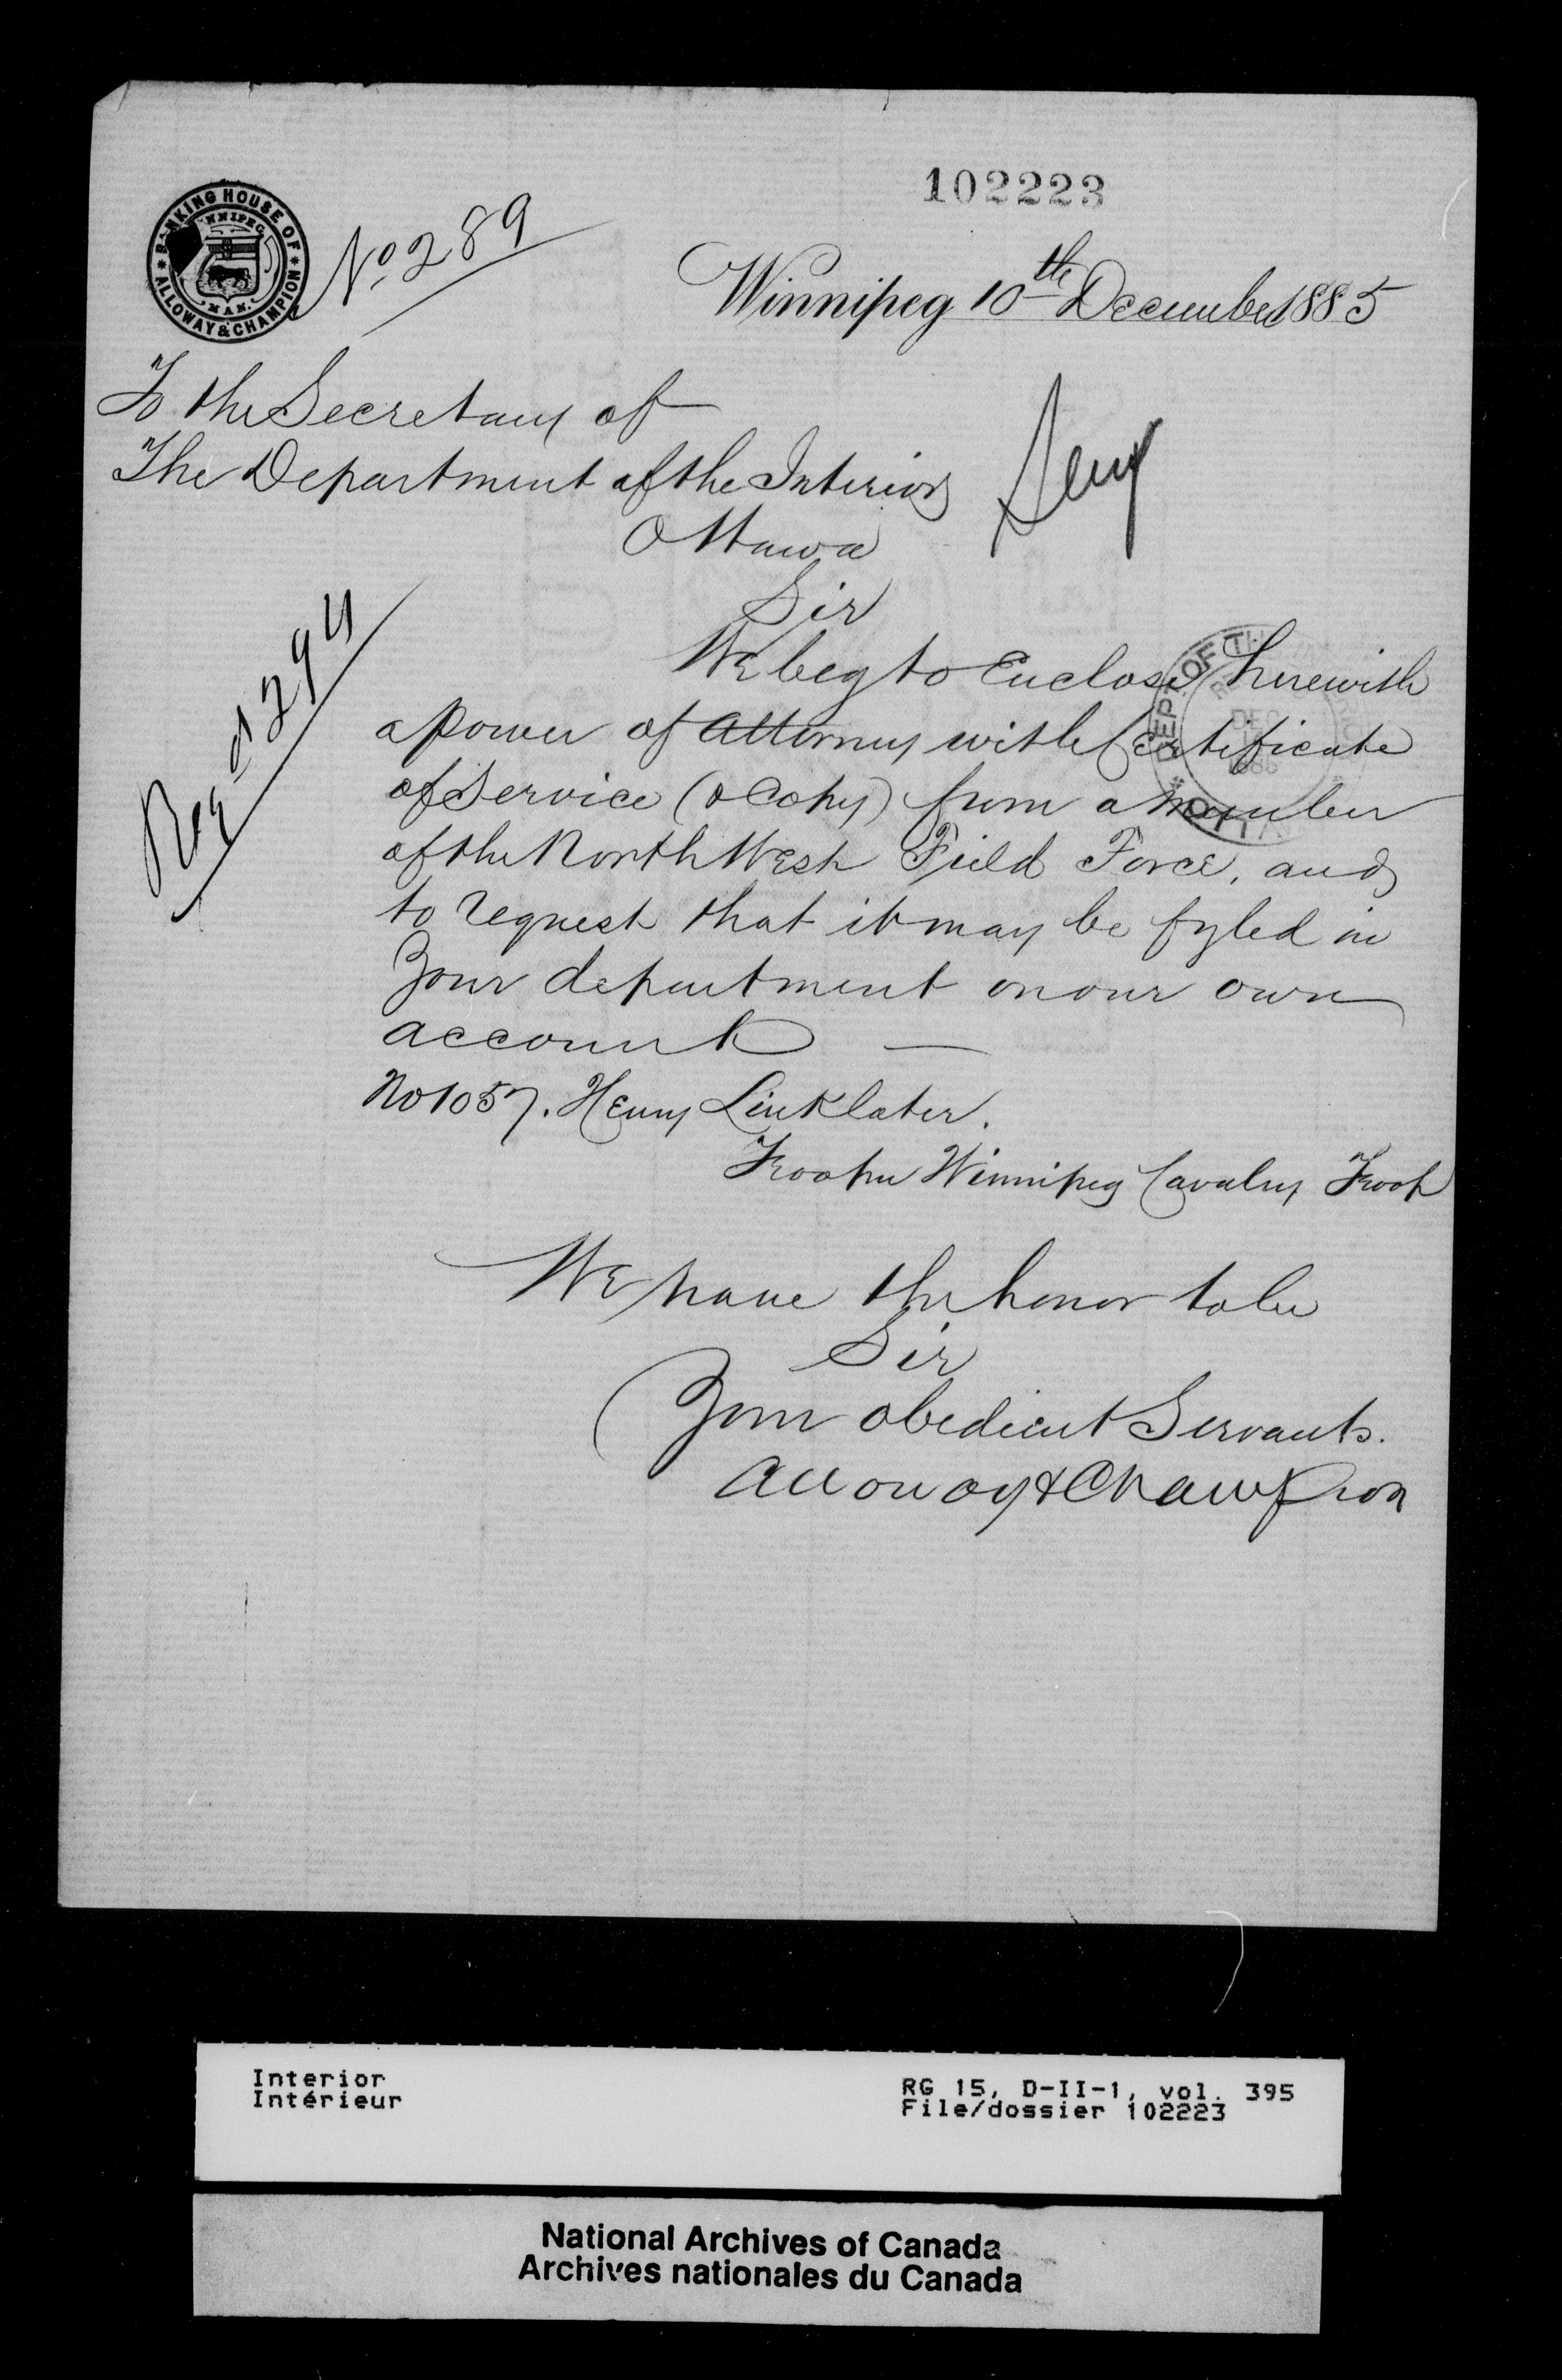 102223
BANKING HOUSE OF
ALLOWAY & CHAMPION
WINNIPEG
MAN.
No. 289
Winnipeg 10th December 1885
To the Secretary of
The Department of the Interior
Ottawa
Sir
Regd 294
We beg to Enclose herewith
a Power of Attorney with Certificate
of Service (& Copy) from a member
of the North West Field Force, and
to request that it may be fyled in
Your department on our own
account —
No 1057. Henry Linklater.
Trooper Winnipeg Cavalry Troop
We have the honor to be
Sir
Your obedient Servants.
Alloway & Champion
DEPT OF TH
DEC
OTTAWA
Interior
Intérieur
RG 15, D-II-1, vol. 395
File/dossier 102223
National Archives of Canada
Archives nationales du Canada